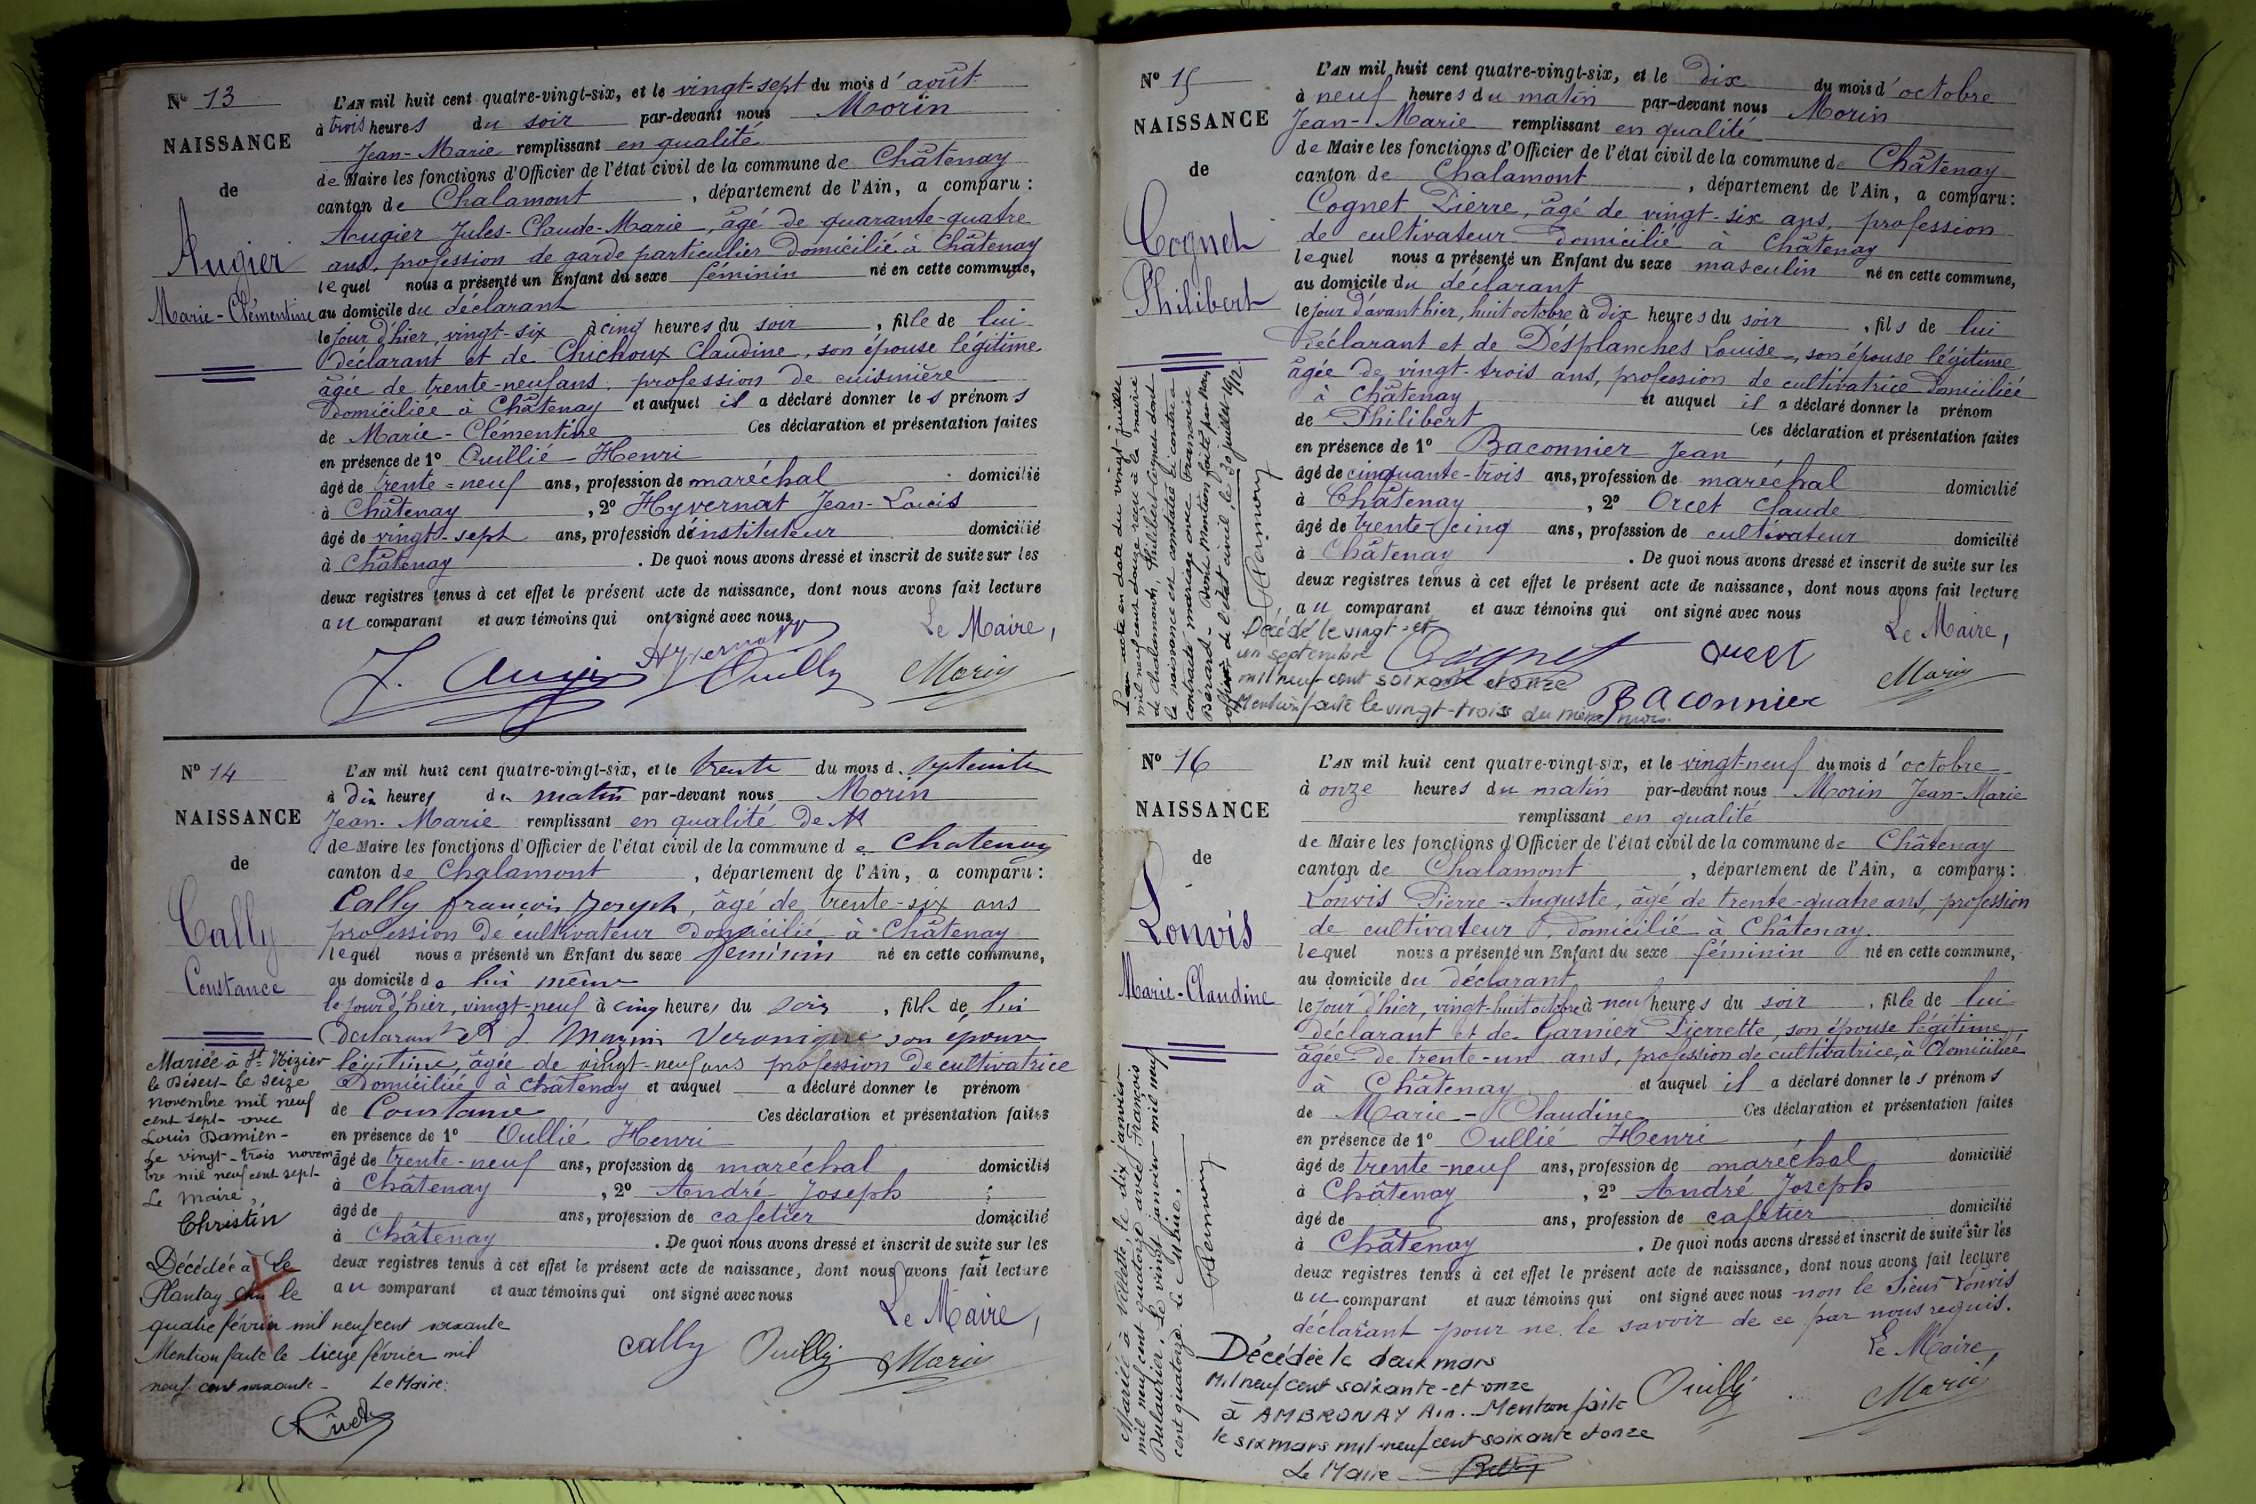 Nº 13
NAISSANCE
de
Augier
Marie-Clémentine
L'AN mil huit cent quatre-vingt-six, et le vingt-sept du mois d'août
à trois heures du soir par-devant nous Morin
Jean-Marie remplissant en qualité
de Maire les fonctions d'Officier de l'état civil de la commune de Châtenay
canton de Chalamont, département de l'Ain, a comparu:
Augier Jules-Claude-Marie, âgé de quarante-quatre
ans, profession de garde particulier domicilié à Châtenay
lequel nous a présenté un Enfant du sexe féminin né en cette commune,
au domicile du déclarant
le jour d'hier vingt-six à cinq heures du soir, fille de lui
déclarant et de Chichoux Claudine, son épouse légitime
âgée de trente-neuf ans, profession de cuisinière
domiciliée à Châtenay et auquel il a déclaré donner les prénoms
de Marie-Clémentine Ces déclaration et présentation faites
en présence de 1º Ouillié Henri
âgé de trente-neuf ans, profession de maréchal domicilié
à Châtenay, 2º Hyvernat Jean-Louis
âgé de vingt-sept ans, profession d'instituteur domicilié
à Châtenay. De quoi nous avons dressé et inscrit de suite sur les
deux registres tenus à cet effet le présent acte de naissance, dont nous avons fait lecture
au comparant et aux témoins qui ont signé avec nous
Le Maire,
J. Augier Hyvernat Ouilly Morin
Nº 14
NAISSANCE
de
Cally
Constance
L'AN mil huit cent quatre-vingt-six, et le trente du mois d. septembre
à dix heures du matin par-devant nous Morin
Jean-Marie remplissant en qualité de M
de Maire les fonctions d'Officier de l'état civil de la commune de Chatenay
canton de Chalamont, département de l'Ain, a comparu:
Cally françois Joseph, âgé de trente-six ans
profession de cultivateur domicilié à Châtenay
lequel nous a présenté un Enfant du sexe féminin né en cette commune,
au domicile de lui même
le jour d'hier, vingt-neuf à cinq heures du soir, fille de lui
déclarant et d Mazuir Veronique son épouse
légitime, âgée de vingt-neuf ans profession de cultivatrice
Domiciliée à Châtenay et auquel a déclaré donner le prénom
de Constance Ces déclaration et présentation faites
en présence de 1º Oullié Henri
âgé de trente-neuf ans, profession de maréchal domicilié
à Châtenay, 2º André Joseph
âgé de ans, profession de cafetier domicilié
à Châtenay. De quoi nous avons dressé et inscrit de suite sur les
deux registres tenus à cet effet le présent acte de naissance, dont nous avons fait lecture
au comparant et aux témoins qui ont signé avec nous
Le Maire,
cally Ouilly Morin
Mariée à St Nizier
le Désert le seize
novembre mil neuf
cent sept avec
Louis Damien-
Le vingt-trois novem-
bre mil neuf cent sept-
Le Maire,
Christin
Décédée à Le
Plantay le
quatre février mil neuf cent soixante
Mention faite le treize février mil
neuf cent soixante - Le Maire:
Nº 15
NAISSANCE
de
Cognet
Philibert
L'AN mil huit cent quatre-vingt-six, et le dix du mois d'octobre
à neuf heures du matin par-devant nous Morin
Jean-Marie remplissant en qualité
de Maire les fonctions d'Officier de l'état civil de la commune de Châtenay
canton de Chalamont, département de l'Ain, a comparu:
Cognet Pierre, âgé de vingt-six ans, profession
de cultivateur domicilié à Châtenay
lequel nous a présenté un Enfant du sexe masculin né en cette commune,
au domicile du déclarant
le jour d'avant hier, huit octobre à dix heures du soir, fils de lui
déclarant et de Désplanches Louise, son épouse légitime
âgée de vingt-trois ans, profession de cultivatrice domiciliée
à Châtenay et auquel il a déclaré donner le prénom
de Philibert Ces déclaration et présentation faites
en présence de 1º Baconnier Jean
âgé de cinquante-trois ans, profession de maréchal domicilié
à Châtenay, 2º Orcet Claude
âgé de trente-cinq ans, profession de cultivateur domicilié
à Châtenay. De quoi nous avons dressé et inscrit de suite sur les
deux registres tenus à cet effet le présent acte de naissance, dont nous avons fait lecture
au comparant et aux témoins qui ont signé avec nous
Le Maire,
Cognet Orcet Morin
Baconnier
Par acte en date du vingt juillet
mil neuf cent douze reçu à la mairie
de Chalamont, Philibert Cognet dont
la naissance est constatée ci-contre a
contracté mariage avec Françoise
Bérard. Dont mention faite par nous
officier de l'état civil, le 30 juillet 1912
Décédé le vingt-et
un septembre
mil neuf cent soixante et onze
Mention faite le vingt-trois du même mois.
Nº 16
NAISSANCE
de
Louvis
Marie-Claudine
L'AN mil huit cent quatre-vingt-six, et le vingt-neuf du mois d'octobre
à onze heures du matin par-devant nous Morin Jean-Marie
remplissant en qualité
de Maire les fonctions d'Officier de l'état civil de la commune de Châtenay
canton de Chalamont, département de l'Ain, a comparu:
Louvis Pierre-Auguste, âgé de trente-quatre ans, profession
de cultivateur domicilié à Châtenay.
lequel nous a présenté un Enfant du sexe féminin né en cette commune,
au domicile du déclarant
le jour d'hier, vingt-huit octobre à neuf heures du soir, fille de lui
déclarant et de Garnier Pierrette, son épouse légitime
âgée de trente-un ans, profession de cultivatrice, à domiciliée
à Châtenay et auquel il a déclaré donner les prénoms
de Marie-Claudine Ces déclaration et présentation faites
en présence de 1º Oullié Henri
âgé de trente-neuf ans, profession de maréchal domicilié
à Châtenay, 2º André Joseph
âgé de ans, profession de cafetier domicilié
à Châtenay. De quoi nous avons dressé et inscrit de suite sur les
deux registres tenus à cet effet le présent acte de naissance, dont nous avons fait lecture
au comparant et aux témoins qui ont signé avec nous non le sieur Louvis
déclarant pour ne le savoir de ce par nous requis.
Le Maire,
Ouilly Morin
Mariée à Villette, le dix janvier
mil neuf cent quatorze avec François
Le vingt janvier mil neuf
cent quatorze. Le Maire,
Décédée le deux mars
mil neuf cent soixante-et onze
à AMBRONAY Ain. Mention faite
le six mars mil neuf cent soixante et onze
Le Maire